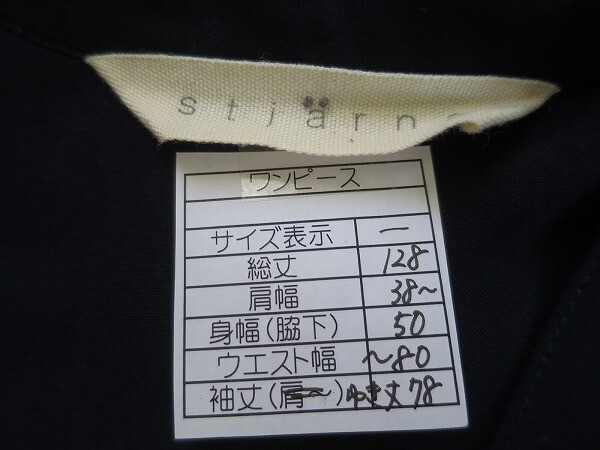 stjärna
ワンピース
サイズ表示 ー
総丈 128
肩幅 38〜
身幅(脇下) 50
ウエスト幅 〜80
袖丈(肩〜)ゆき丈78